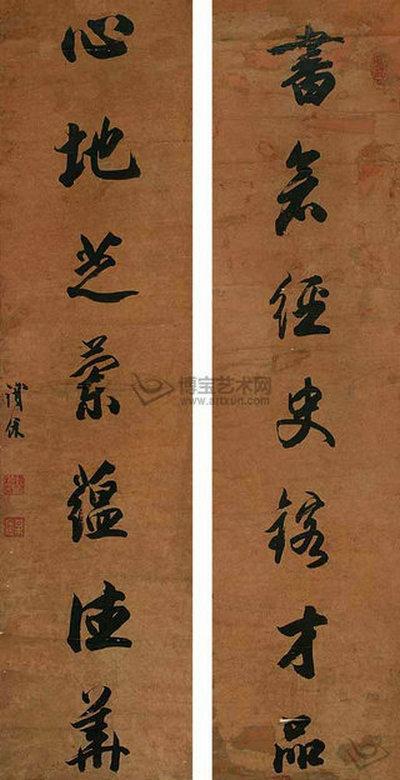 書經史鎔才品
心地芝蘭蘊德華
鐵保
博宝艺术网
www.artxun.com